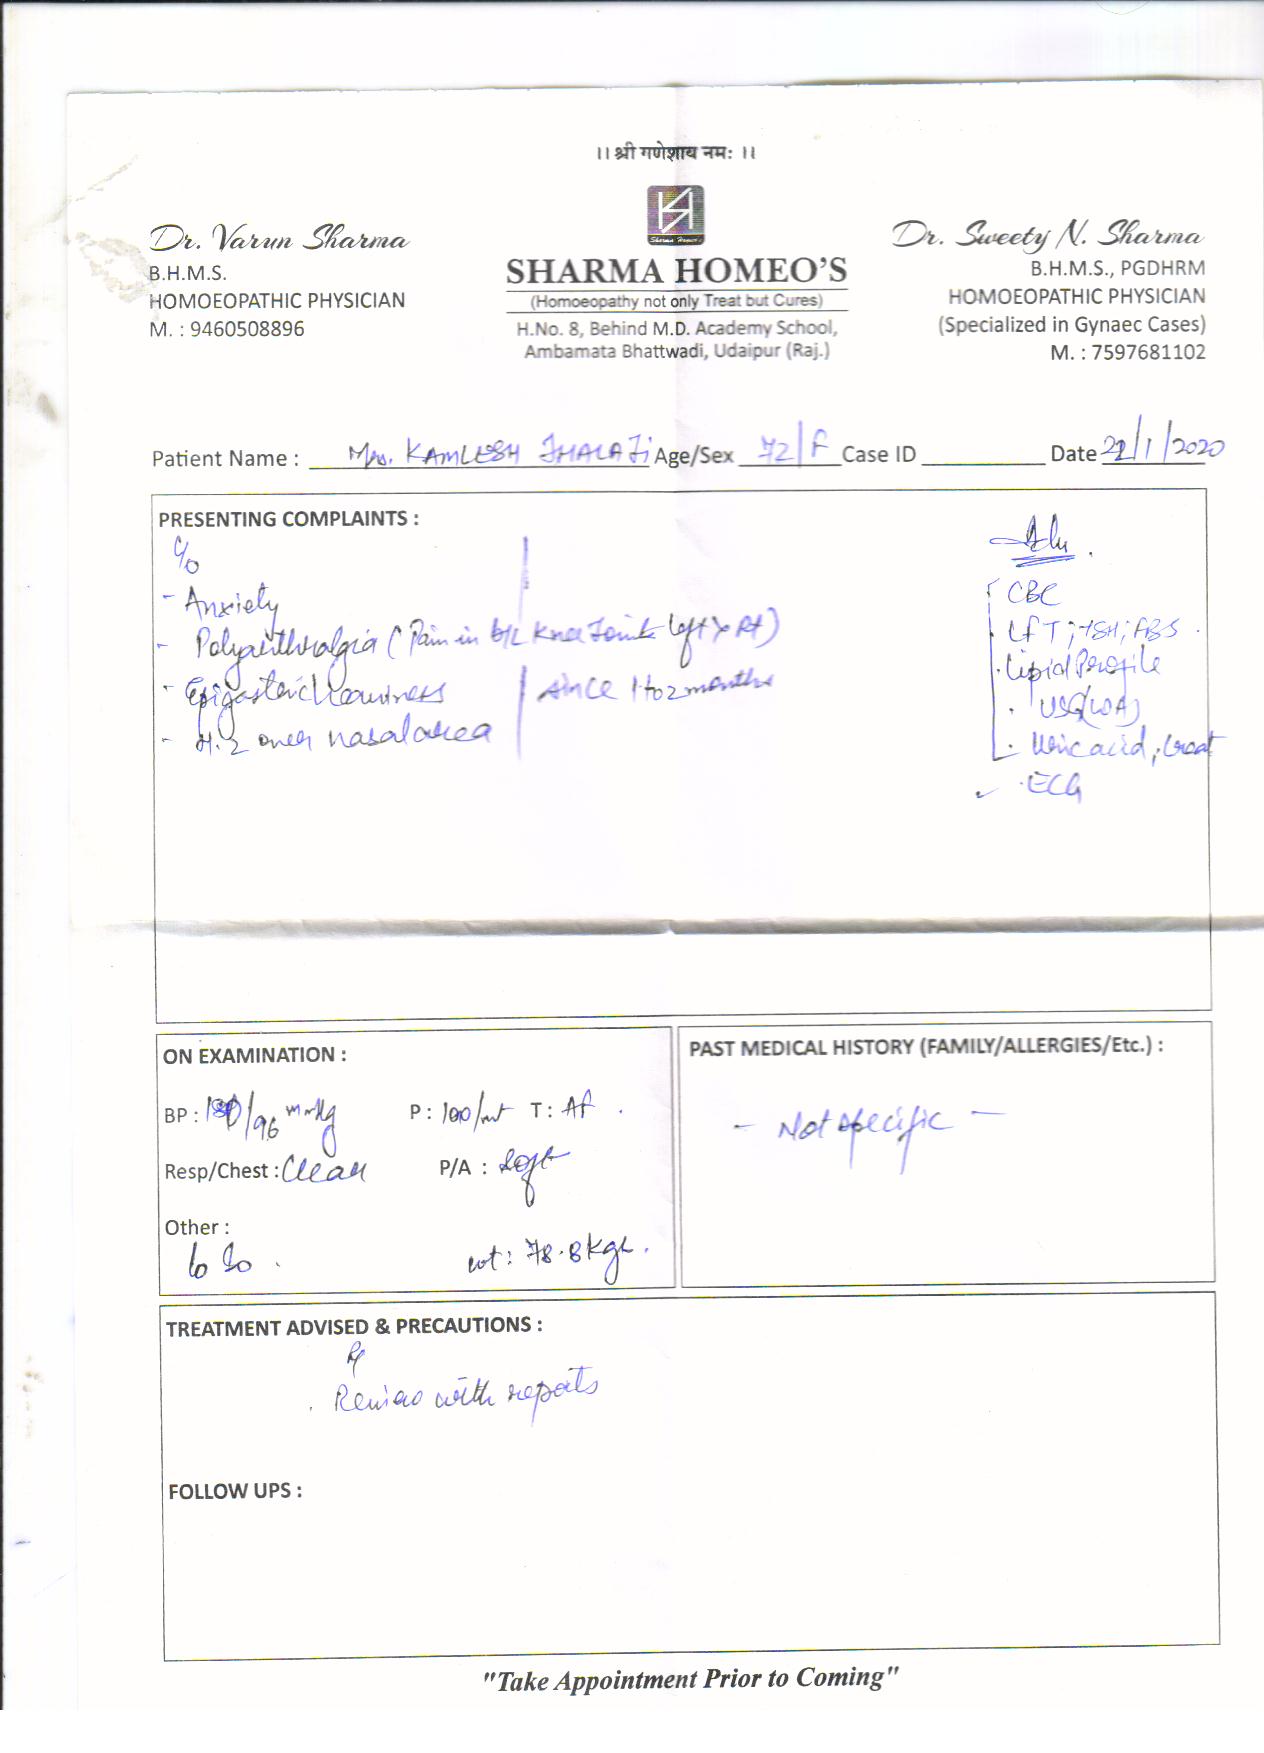 ।। श्री गणेशाय नमः ।।
Dr. Varun Sharma
B.H.M.S.
HOMOEOPATHIC PHYSICIAN
M. : 9460508896
Sharma Homeo's
SHARMA HOMEO'S
(Homoeopathy not only Treat but Cures)
H.No. 8, Behind M.D. Academy School,
Ambamata Bhattwadi, Udaipur (Raj.)
Dr. Sweety N. Sharma
B.H.M.S., PGDHRM
HOMOEOPATHIC PHYSICIAN
(Specialized in Gynaec Cases)
M. : 7597681102
Patient Name : Mrs. KAMLESH JHALA Ji Age/Sex 72/F Case ID Date 22/1/2020
PRESENTING COMPLAINTS :
C/o
- Anxiety
- Polyarthralgia (Pain in b/L Knee Joints left > Rt)
- Epigastric Heaviness
since 1 to 2 months
- H.Z over nasal area
Adv
CBC
LFT ; TSH ; FBS
Lipid Profile
USG (W/A)
Uric acid, Creat
ECG
ON EXAMINATION :
BP : /96 mmHg P : 100/mt T : Af
Resp/Chest : Clear P/A : Soft
Other :
wt : 78.8 kgs.
PAST MEDICAL HISTORY (FAMILY/ALLERGIES/Etc.) :
- Not specific -
TREATMENT ADVISED & PRECAUTIONS :
Rx
. Review with reports
FOLLOW UPS :
"Take Appointment Prior to Coming"